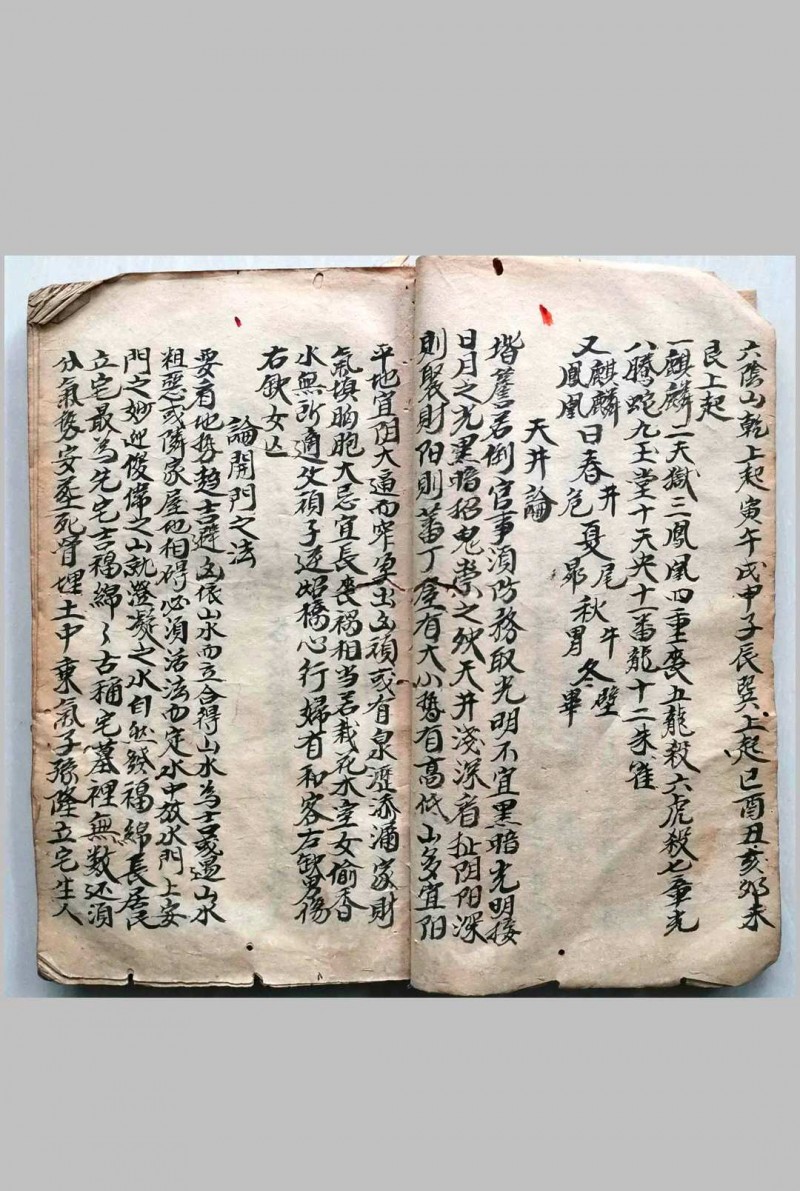 六陰山乾上起寅午戌甲子辰巽上起巳酉丑亥卯未
艮上起
一麒麟二天獄三鳳凰四重喪五龍殺六虎殺七章光
八騰蛇九玉堂十天央十一番龍十二朱雀
又麒麟日春井夏尾秋牛冬壁
鳳凰日春危夏昴秋胃冬畢
天井論
堦簷若倒官事須防務取光明不宜黑暗光明接
日月之光黑暗招鬼祟之殃天井淺深看址阴阳深
則聚財阳則蕃丁登有大小势有高低山多宜阳
平地宜阴大逼而窄更出凶頑或有泉瀝添涌家財
氣填胸胞大忌宜長喪禍相当若栽花水室女偷香
水無所適父頑子逆始橋心行婦首和客左缺男傷
右缺女亡
論開門之法
要看地势趋吉避凶依山水而立合得山水為吉或遇山水
粗惡或隣家屋地相碍必須活法而定水中放水門上安
門之妙迎俊偉之山就澄凝之水自然發福綿長居民
立宅最為先宅吉福綿〻古稱宅墓裡無数还須
分氣势安葬死骨埋土中乗氣子孫隆立宅生人